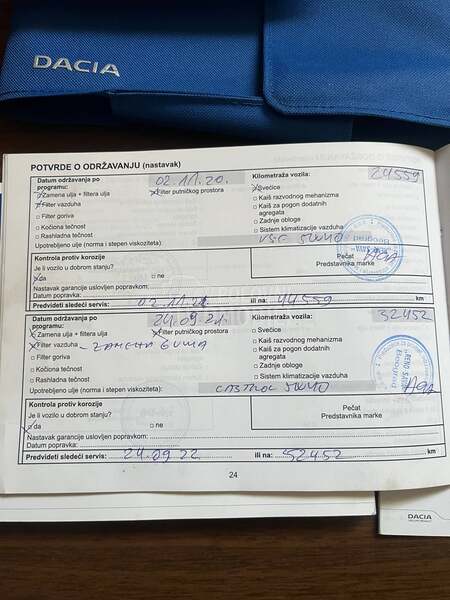 DACIA
POTVRDE O ODRŽAVANJU (nastavak)
Datum održavanja po programu: 02.11.20. Kilometraža vozila: 24559
Zamena ulja + filtera ulja Filter putničkog prostora Svećice
Filter vazduha Kaiš razvodnog mehanizma
Filter goriva Kaiš za pogon dodatnih agregata
Kočiona tečnost Zadnje obloge
Rashladna tečnost Sistem klimatizacije vazduha
Upotrebljeno ulje (norma i stepen viskoziteta): 5W40
Kontrola protiv korozije Pečat
Je li vozilo u dobrom stanju? Predstavnika marke
da ne
Nastavak garancije uslovljen popravkom:
Datum popravka:
Predvideti sledeći servis: 02.11.21 ili na: 44559 km
Datum održavanja po programu: 24.09.21. Kilometraža vozila: 32452
Zamena ulja + filtera ulja Filter putničkog prostora Svećice
Filter vazduha - ZAMENA GUMA Kaiš razvodnog mehanizma
Filter goriva Kaiš za pogon dodatnih agregata
Kočiona tečnost Zadnje obloge
Rashladna tečnost Sistem klimatizacije vazduha
Upotrebljeno ulje (norma i stepen viskoziteta): CASTROL 5W40
Kontrola protiv korozije Pečat
Je li vozilo u dobrom stanju? Predstavnika marke
da ne
Nastavak garancije uslovljen popravkom:
Datum popravka:
Predvideti sledeći servis: 24.09.22 ili na: 52452 km
24
DACIA